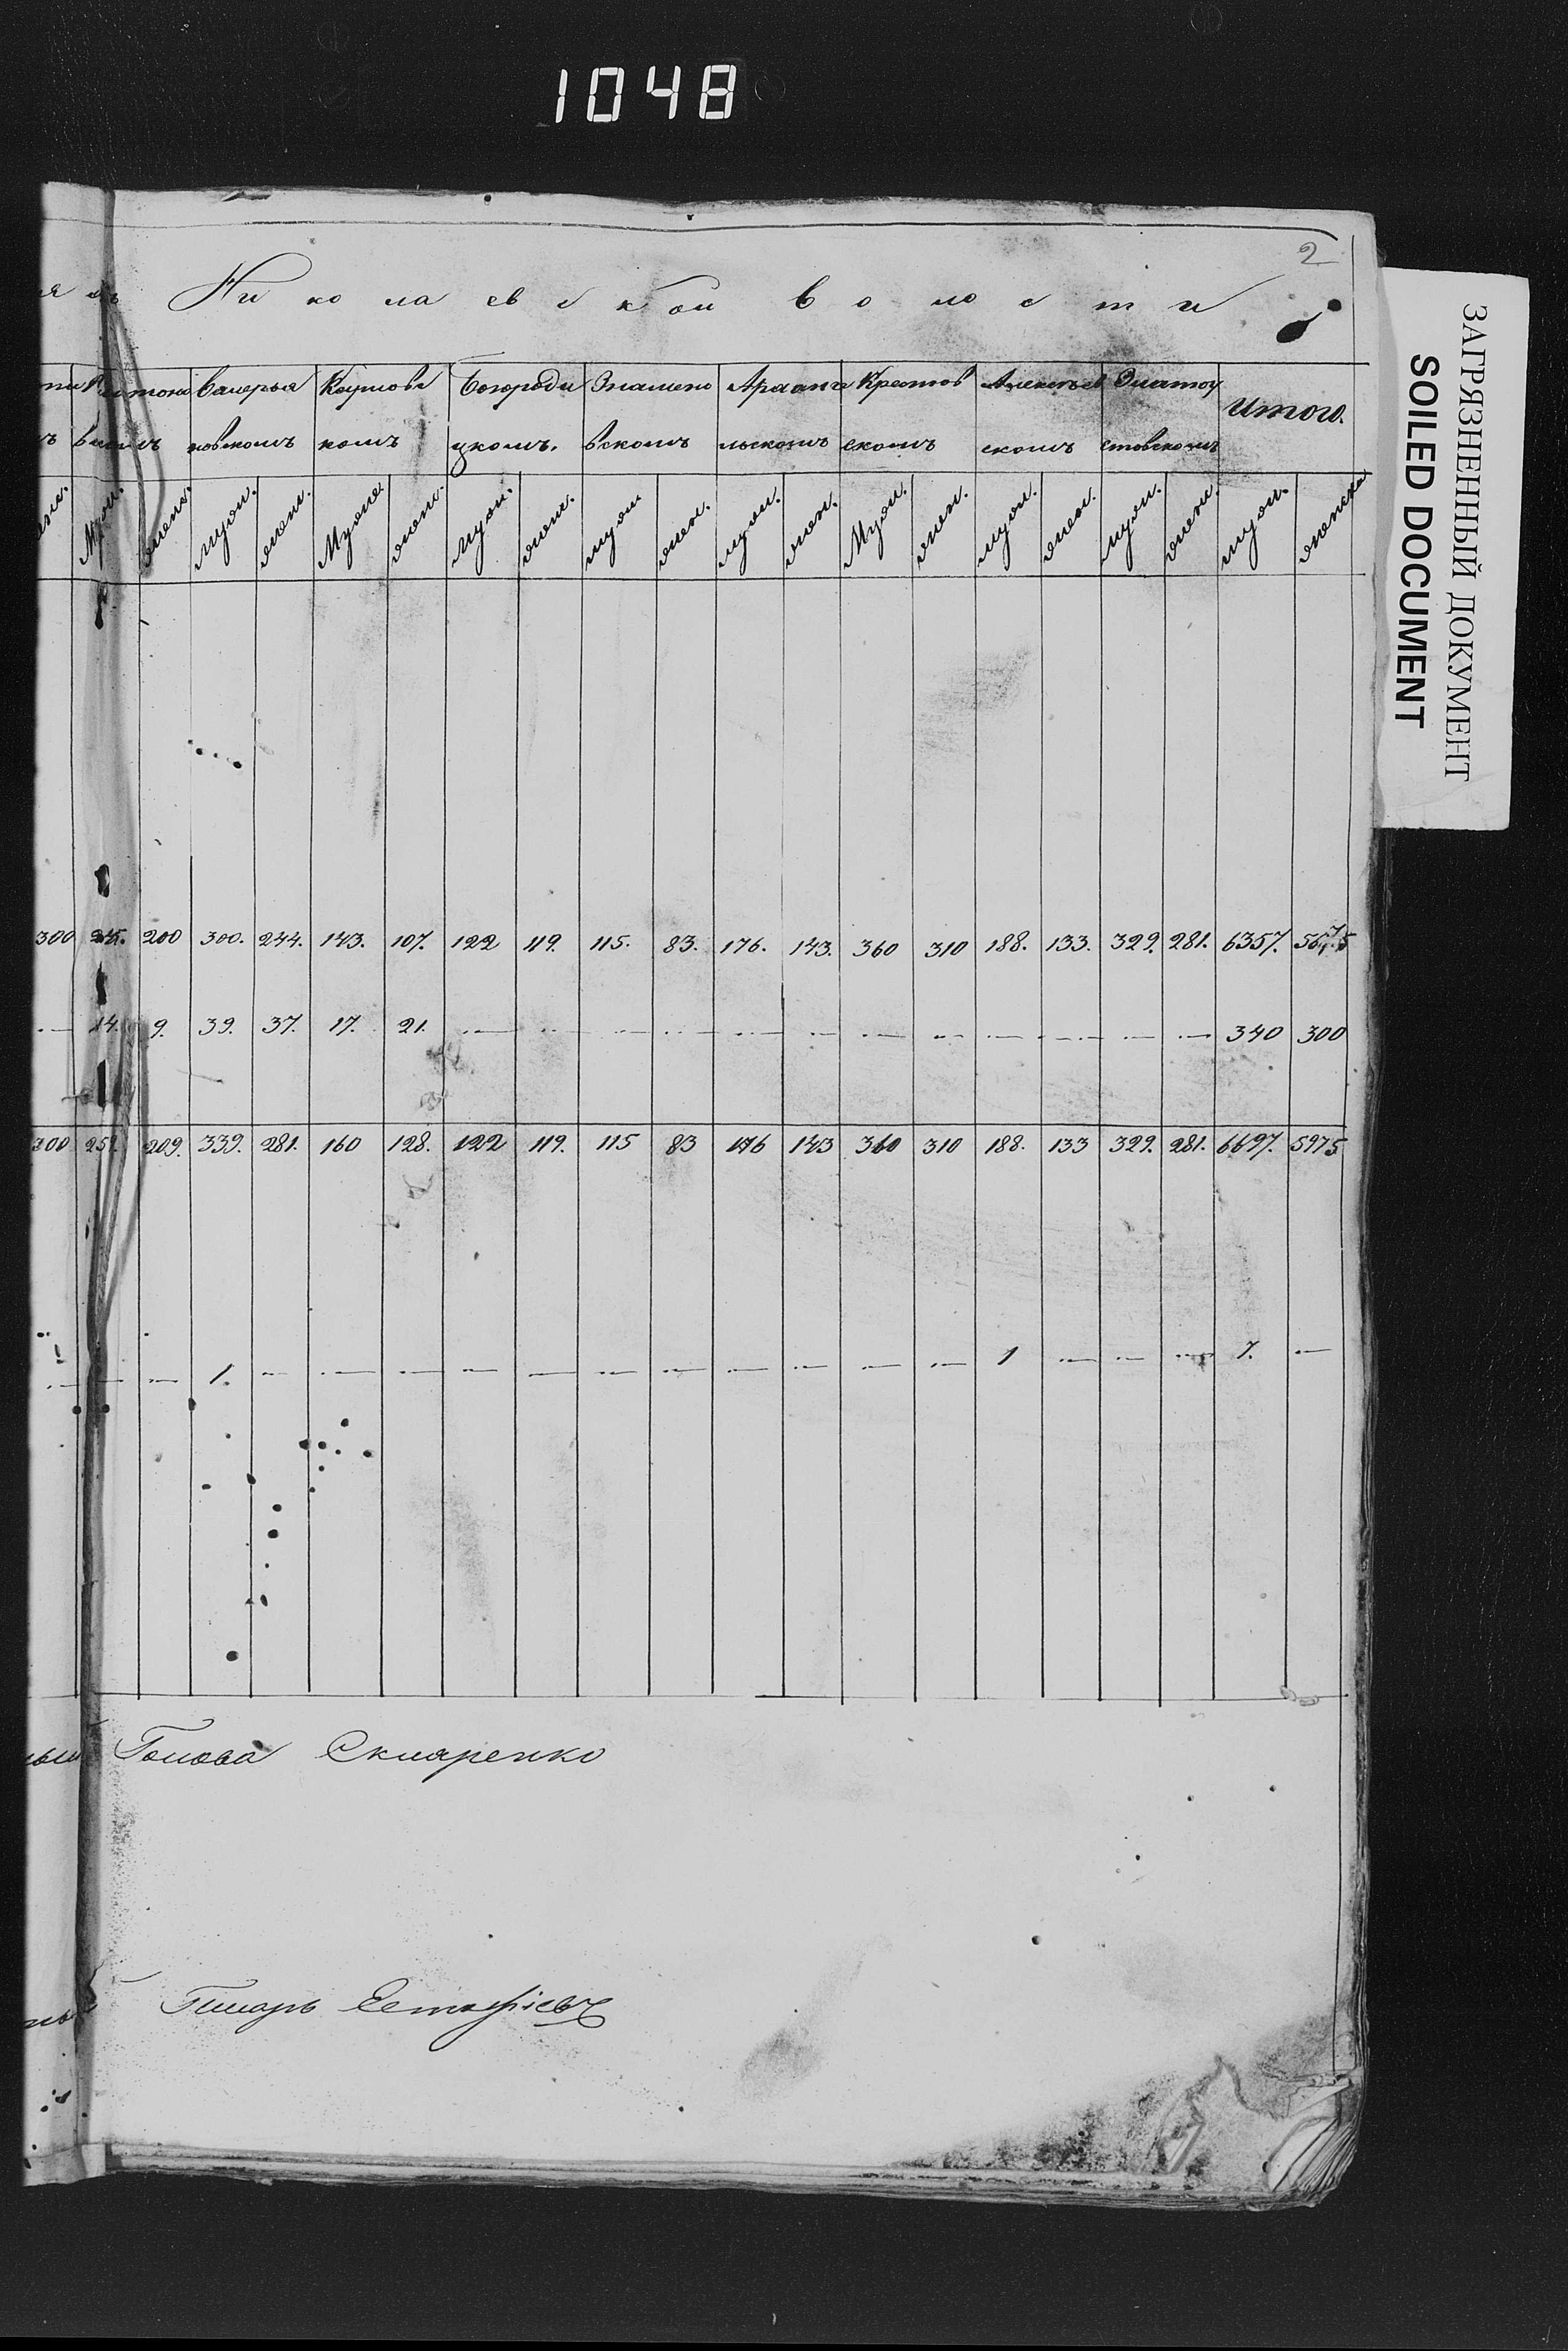 1048
2
Николаевской волости
Валерья Каушова Богороди Знамено Арханге Крестов Алексеев Златоу Итого.
вскомъ новскомъ комъ цкомъ. вскомъ льскомъ скомъ скомъ стовскомъ
жен. Муж. жен. муж. жен. Муж. жен. муж. жен. муж жен. муж. жен. Муж. жен. муж. жен. муж. жен. муж. женска
300 245. 200 300. 244. 143. 107. 122 119. 115. 83. 176. 143. 360 310 188. 133. 329. 281. 6357. 5675
— 14. 9. 39. 37. 17. 21. — — — — — — — — — — — — 340 300
300 259. 209. 339. 281. 160 128. 122 119. 115 83 176 143 360 310 188. 133 329. 281. 6697. 5975
— — — 1. — — — — — — — — — — — 1 — — — 7. —
Голова Скляренко
Писарь Естафіевъ
ЗАГРЯЗНЕННЫЙ ДОКУМЕНТ
SOILED DOCUMENT